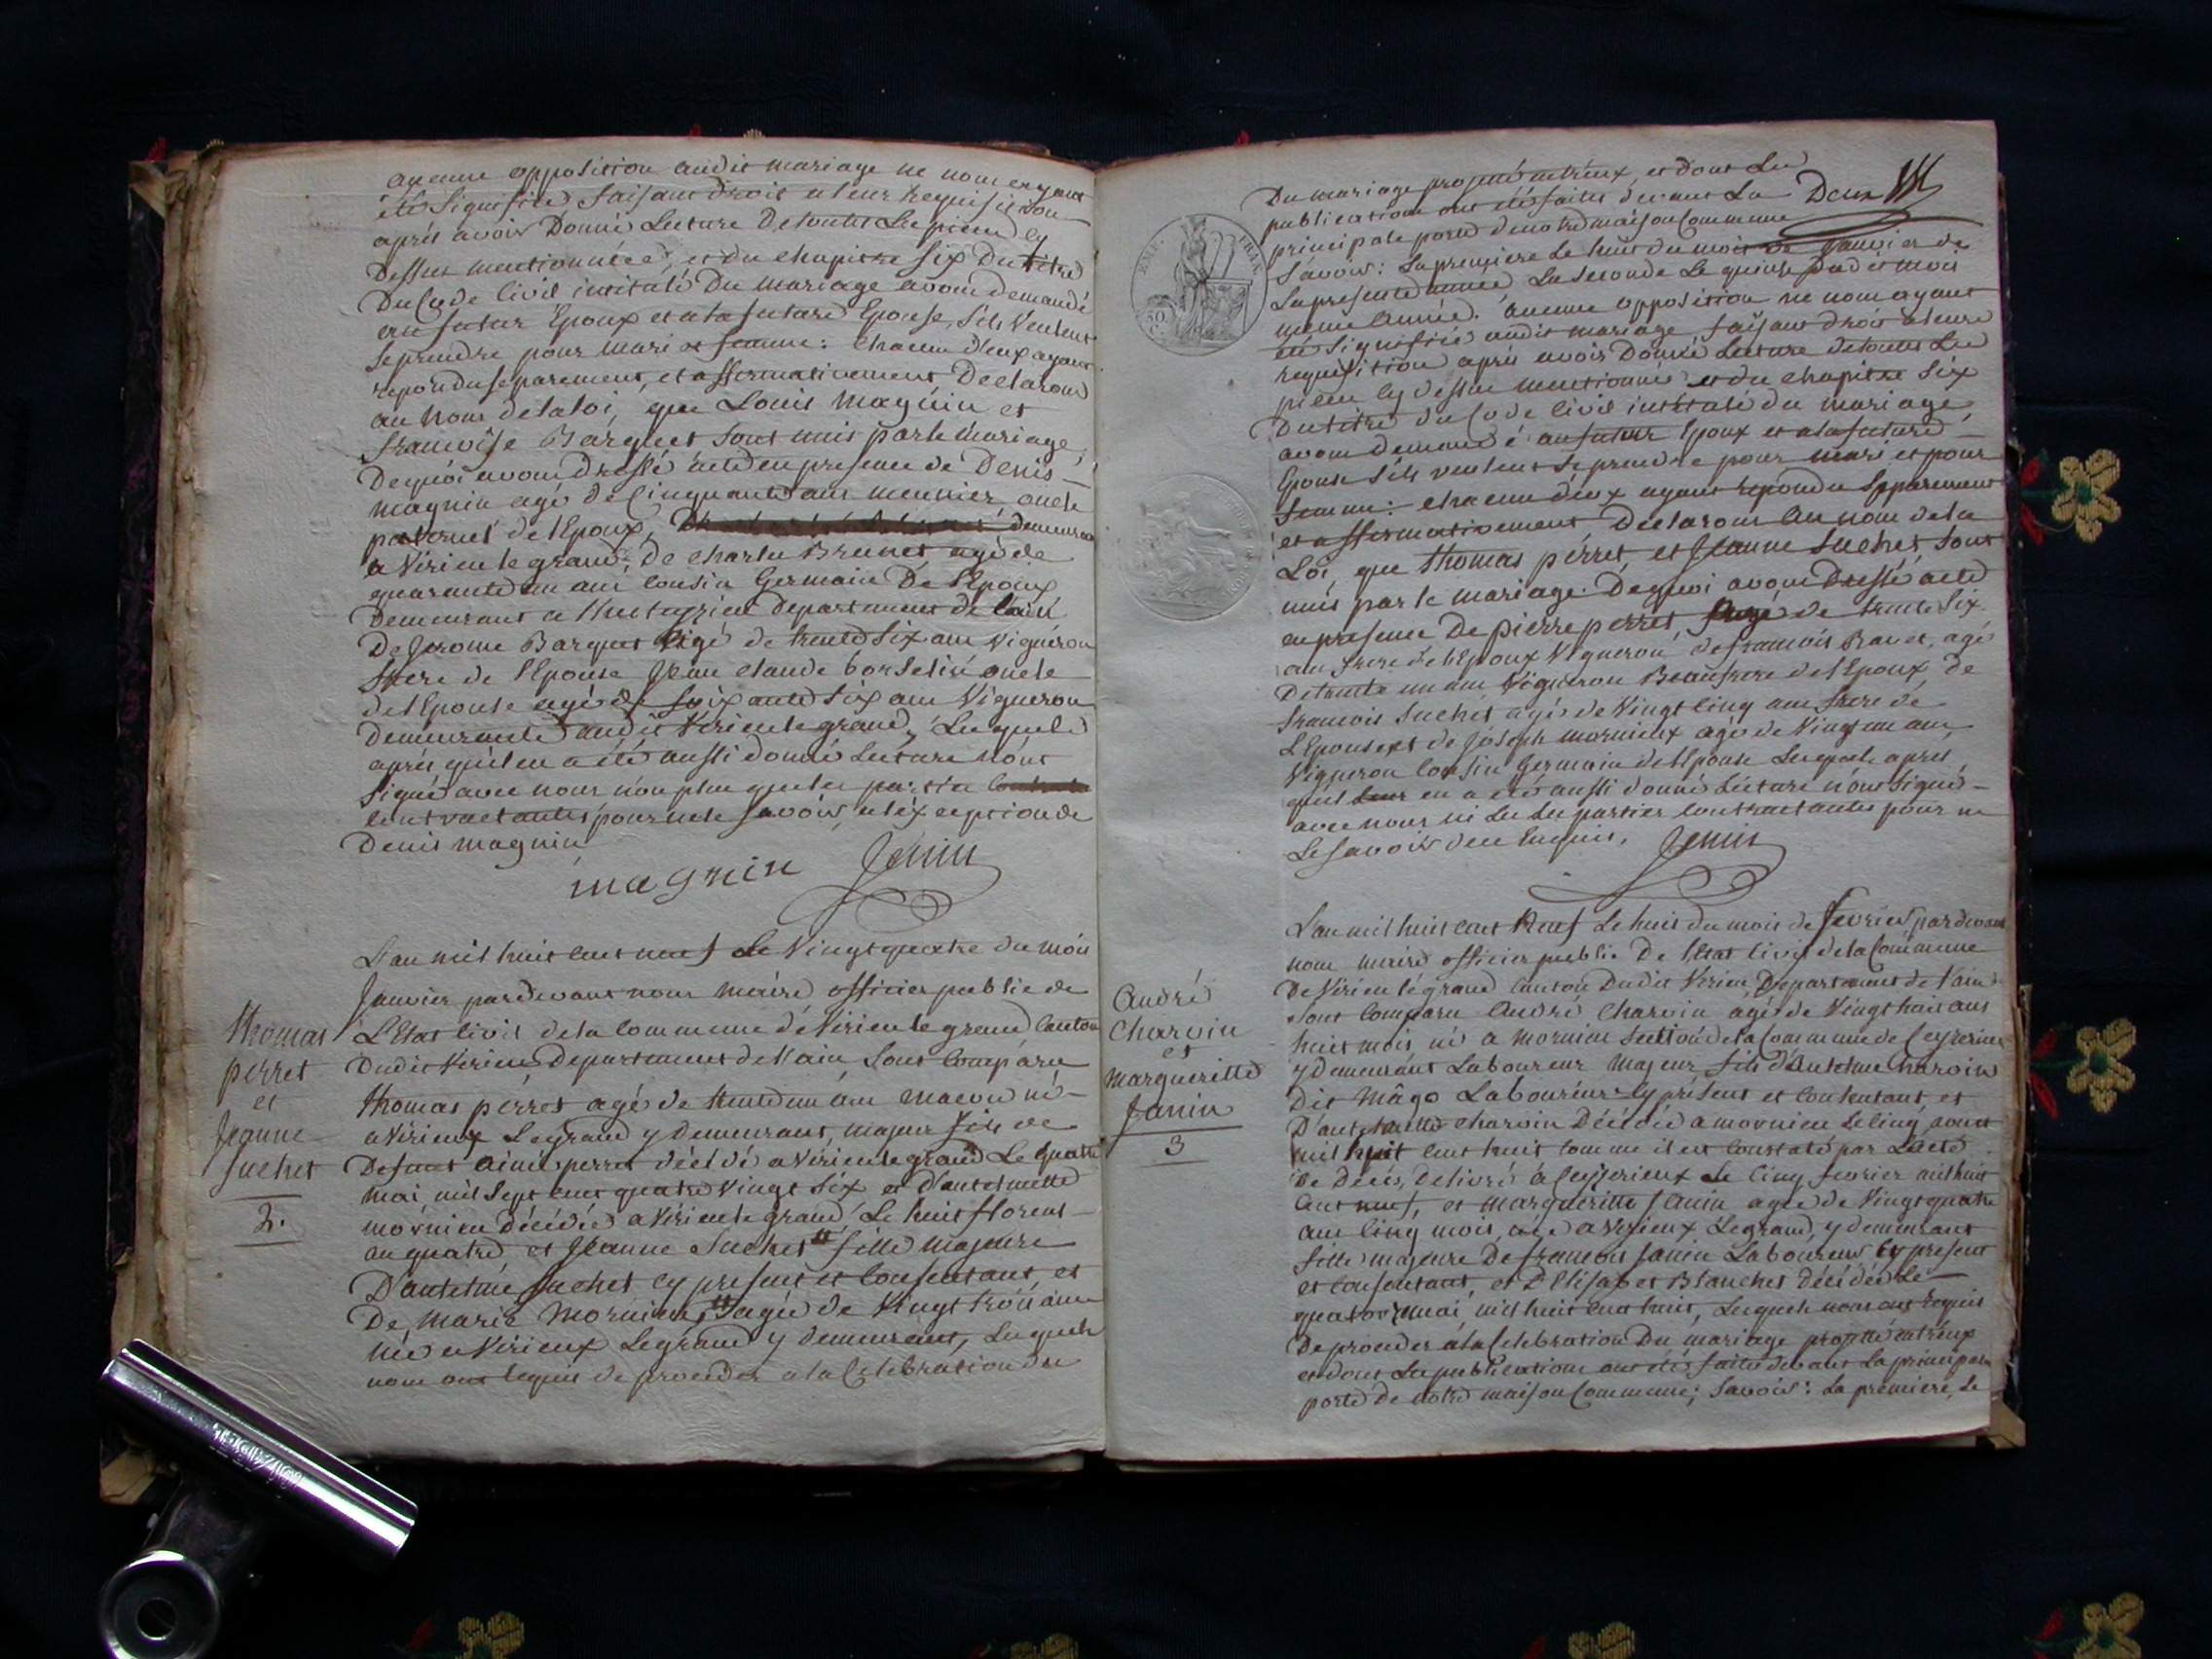 aucune opposition audit mariage ne nous ayant
été Signifiée faisant droit a leur requisition
après avoir Donné Lecture De toutes Les pieces cy
Dessus mentionnées, et du chapitre six Du titre
Du Code Civil intitulé Du mariage avons demandé
au futur Epoux et a la future Epouse, S'ils veulent
Se prendre pour mari et femme: chacun d'eux ayant
repondu separement, et affirmativement, Declarons
au nom de la loi, que Louis Magnin et
francoise Barquet Sont unis par le mariage,
De quoi avons dressé acte en presence de Denis
magnin agé de Cinquante ans meunier, oncle
paternel de l'Epoux, demeurant
a Virieu le grand, de charles Brunet, agé de
quarante un ans cousin Germain De l'Epoux
Demeurant a departement de l'ain
De Jerome Barquet agé de trente six ans vigneron
frere de l'Epouse Jean claude oncle
de l'Epouse agé de soixante six ans Vigneron
Demeurants audit Virieu le grand, Lesquels
après qu'il en a été aussi donné Lecture n'ont
Signé avec nous non plus que les parties
contractantes pour ne le savoir, a l'exception de
Denis magnin
magnin Jenin
L'an mil huit cent neuf Le Vingt quatre du mois
Janvier pardevant nous maire officier public de
L'Etat civil de la commune de Virieu le grand Canton
Dudit Virieu Departement de l'ain, Sont comparu
thomas perret agé de trente un ans né
a Virieux Le grand y demeurant, majeur fils de
Defunt Aimé perret décédé a Virieu le grand Le quatre
mai mil sept cent quatre vingt six et d'antelmette
mornieu décédée a Virieu le grand, Le huit floreal
an quatre, et Jeanne Suchet fille majeure
D'antelme Suchet cy present et Consentant, et
De Marie Mornieu, agée de Vingt trois ans
née a Virieux Legrand y demeurant, Lesquels
nous ont requis de proceder a la Celebration du
thomas
perret
et
Jeanne
Suchet
2.
Deux
Du mariage projetté entr'eux, et dont Les
publications ont été faites devant La
principale porte de notre maison Commune
Savoir: La premiere Le huit du mois de Janvier de
La presente année La seconde Le quinze dudit mois
même année. Aucune opposition ne nous ayant
été Signifiée audit mariage, faisant droit a leur
requisition après avoir Donné Lecture de toutes Les
pieces cy dessus mentionnées et du chapitre Six
Du titre du Code Civil intitulé du mariage,
avons demandé au futur Epoux et a la future
Epouse s'ils veulent se prendre pour mari et pour
femme: chacun d'eux ayant repondu Separement
et affirmativement Declarons Au nom de la
Loi, que thomas pérret, et Jeanne Suchet, Sont
unis par le mariage. De quoi avons Dressé acte
en presence De pierre perret agé de trente Six
ans frere de l'Epoux Vigneron, de francois Ravet, agé
De trente un ans Vigneron Beaufrere de l'Epoux, de
francois Suchet agé de Vingt cinq ans frere de
L'Epouse et de Joseph mornieux agé de Vingt un ans
Vigneron Cousin Germain de l'Epouse Lesquels après
qu'il Leur en a été aussi donné Lecture n'ont Signé
avec nous ni Les Les parties contractantes pour ne
Le savoir de ce Enquis. Jenin
EMP. FRAN.
50 C.
L'an mil huit cent Neuf Le huit du mois de fevrier, pardevant
nous maire officier public De l'Etat civil de la Commune
De Virieu le grand Canton Dudit Virieu, Departement de l'ain
Sont Comparu André Charvin agé de Vingt trois ans
huit mois né a mornieu Section de la Commune de Ceyzerieux
y demeurant Laboureur majeur fils d'Antelme Charvin
Dit Mâgo Laboureur cy présent et Consentant, et
D'antelmette charvin Décédée a mornieu Le cinq aout
mil huit cent huit comme il est constaté par L'acte
de décés, delivré à Ceyzerieux Le Cinq fevrier mil huit
Cent neuf, et Margueritte Janin agée de Vingt quatre
ans Cinq mois, née a Virieux Legrand, y demeurant
fille majeure De francois Janin Laboureur Cy present
et Consentant, et D'Elisabet Blanchet décédée le
quatorze mai mil huit cent huit, Lesquels nous ont requis
De proceder a la Celebration Du mariage projetté entr'eux
et dont Les publications ont été faites devant La principale
porte De notre maison Commune; Savoir: La premiere, Le
André
Charvin
et
Margueritte
Janin
3